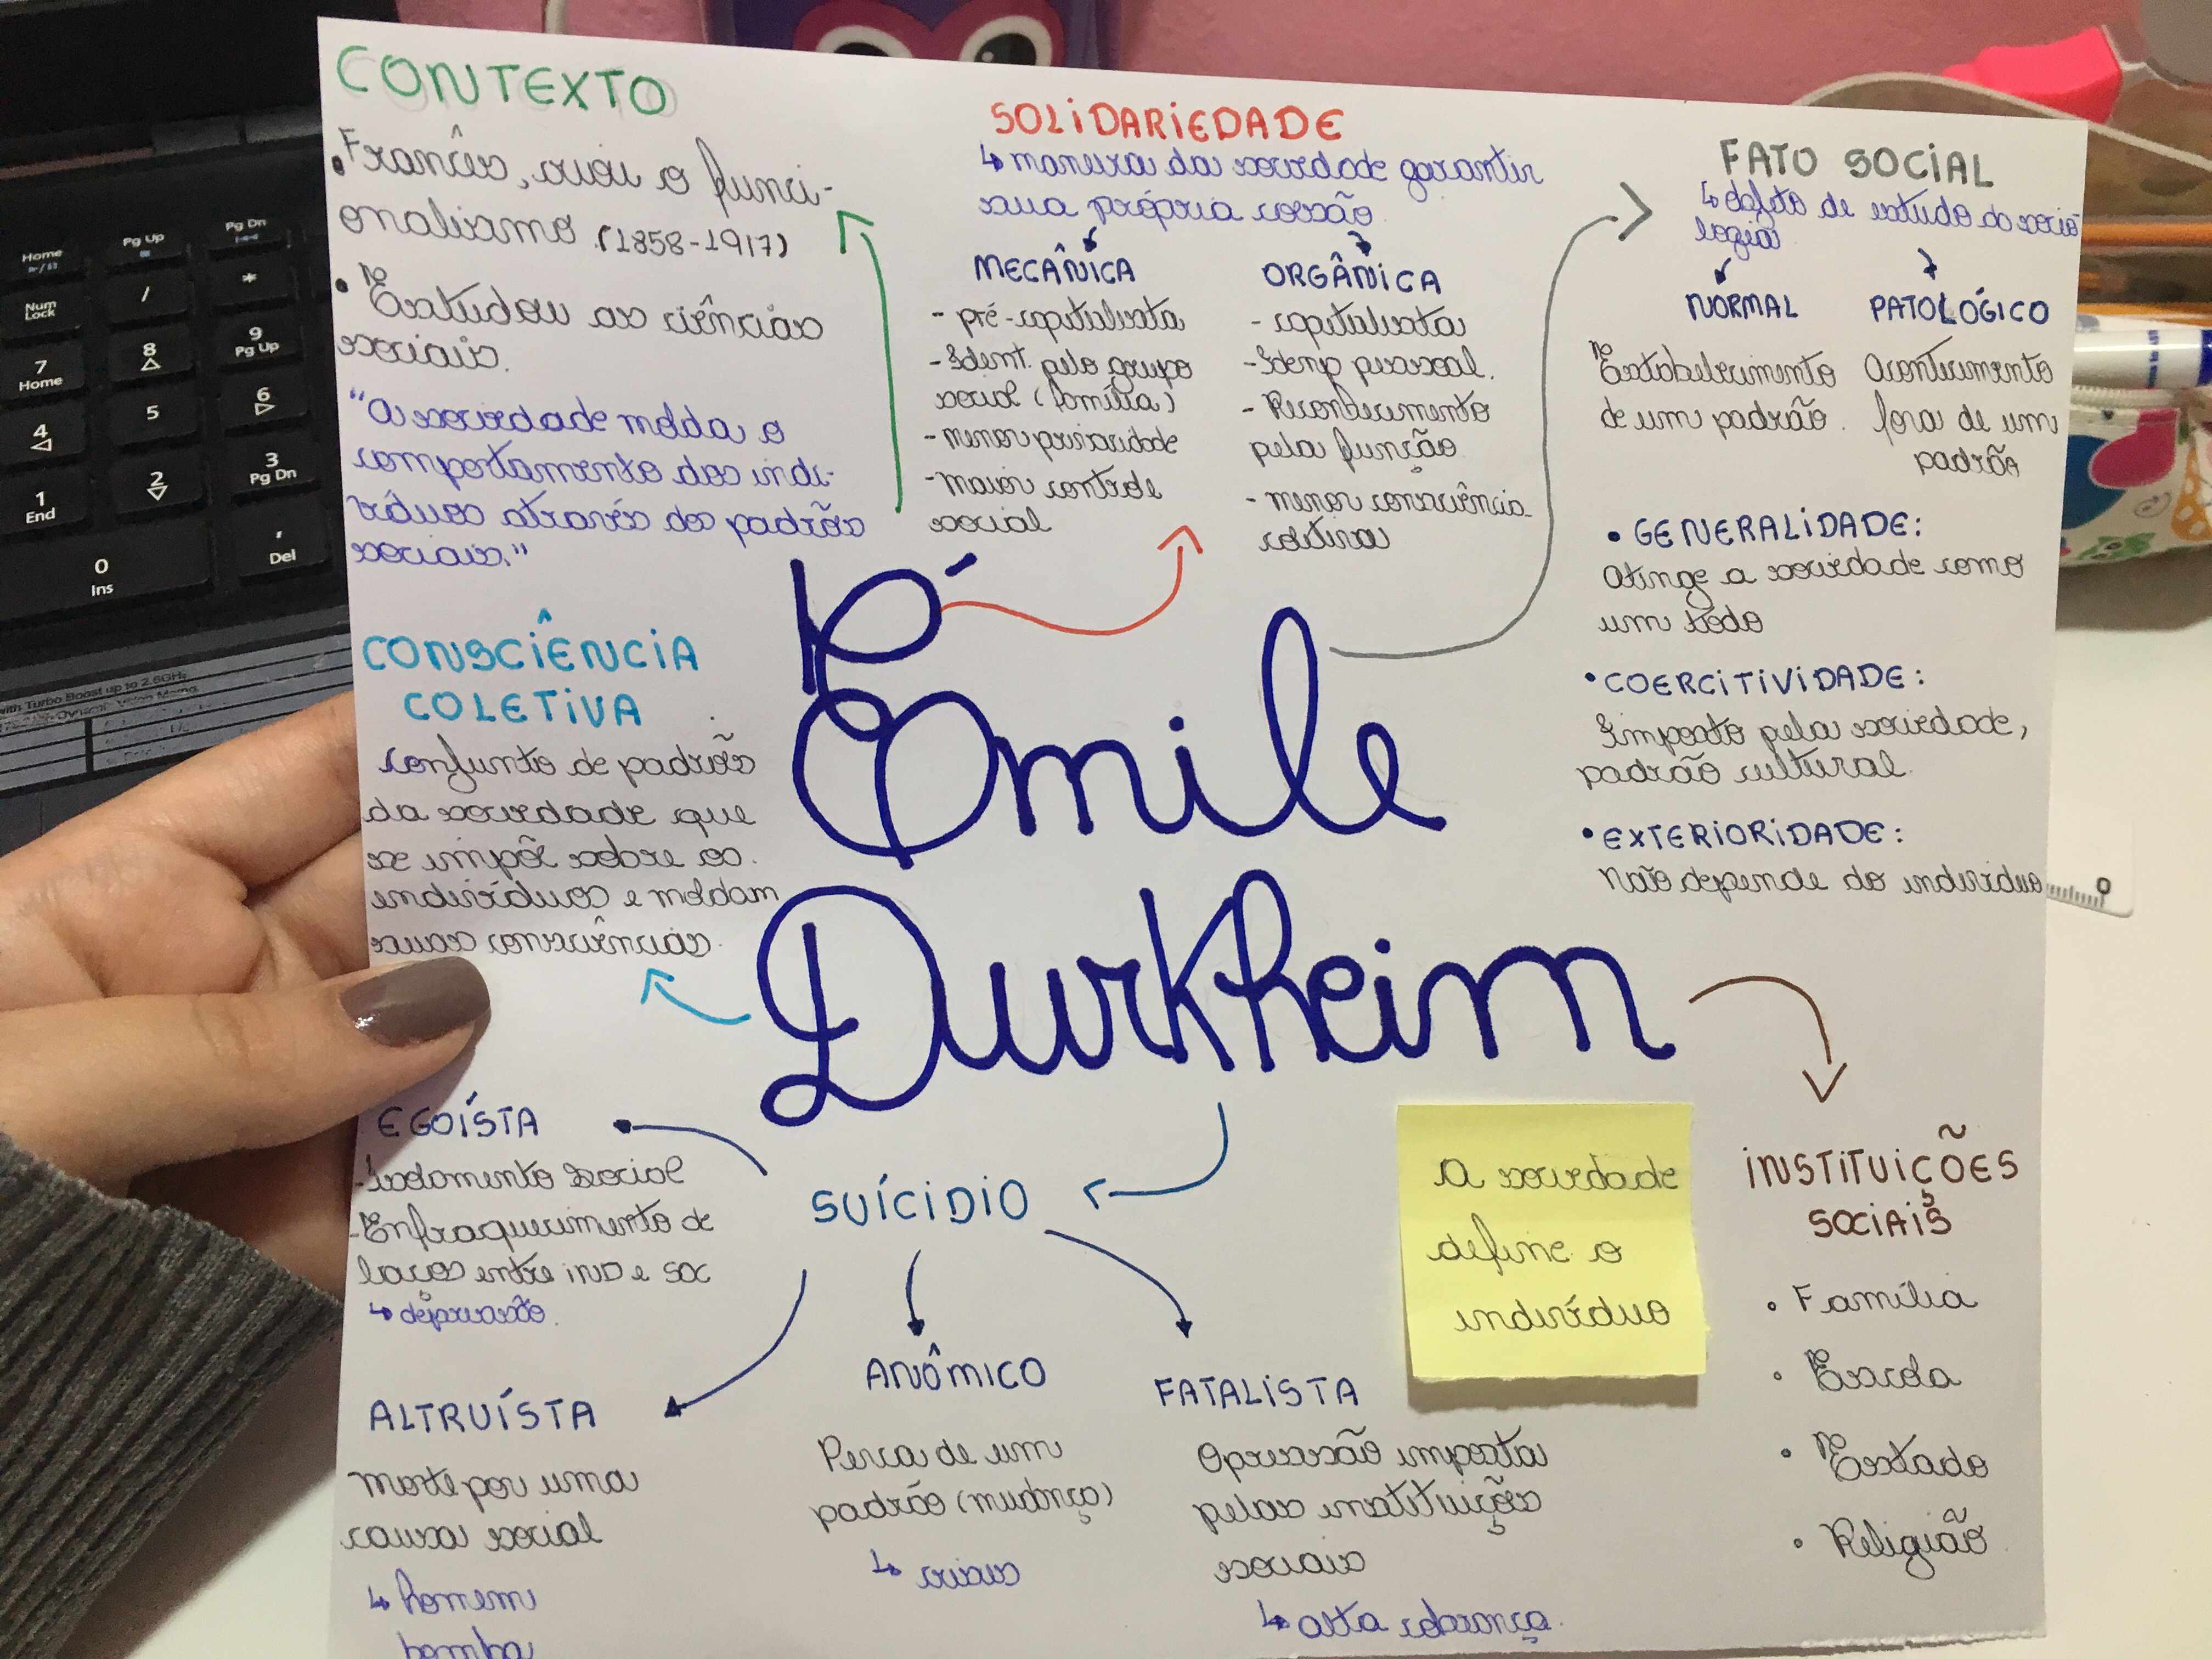 CONTEXTO
• Francês, criou o funci-
onalismo (1858-1917)
• Estudou as ciências
sociais.
"A sociedade molda o
comportamento dos indi-
víduos através dos padrões
sociais."
SOLIDARIEDADE
↳ maneira da sociedade garantir
sua própria coesão
MECÂNICA
- pré-capitalista
- Ident. pelo grupo
social (família)
- menor privacidade
- maior controle
social
ORGÂNICA
- capitalista
- Idenp pessoal.
- Reconhecimento
pela função
- menor consciência
coletiva
FATO SOCIAL
↳ objeto de estudo da socio-
logia
NORMAL
Estabelecimento
de um padrão.
PATOLÓGICO
Acontecimento
fora de um
padrão
• GENERALIDADE:
Atinge a sociedade como
um todo
• COERCITIVIDADE:
Imposto pela sociedade,
padrão cultural.
• EXTERIORIDADE:
Não depende do indivíduo
CONSCIÊNCIA
COLETIVA
Conjunto de padrões
da sociedade que
se impõe sobre os
indivíduos e moldam
suas consciências.
Émile
Durkheim
SUÍCIDIO
EGOÍSTA
- Isolamento social
- Enfraquecimento de
laços entre IND e SOC
↳ depressão.
ALTRUÍSTA
Morte por uma
causa social
↳ homem
bomba
ANÔMICO
Perca de um
padrão (mudança)
↳ crises
FATALISTA
Opressão imposta
pelas instituições
sociais
↳ alta cobrança.
A sociedade
define o
indivíduo
INSTITUIÇÕES
SOCIAIS
• Família
• Escola
• Estado
• Religião
Home
Pg Up
Pg Dn
Num
Lock
/
*
7
Home
8
9
Pg Up
4
5
6
1
End
2
3
Pg Dn
0
Ins
,
Del
with Turbo Boost up to 2.6GHz
0